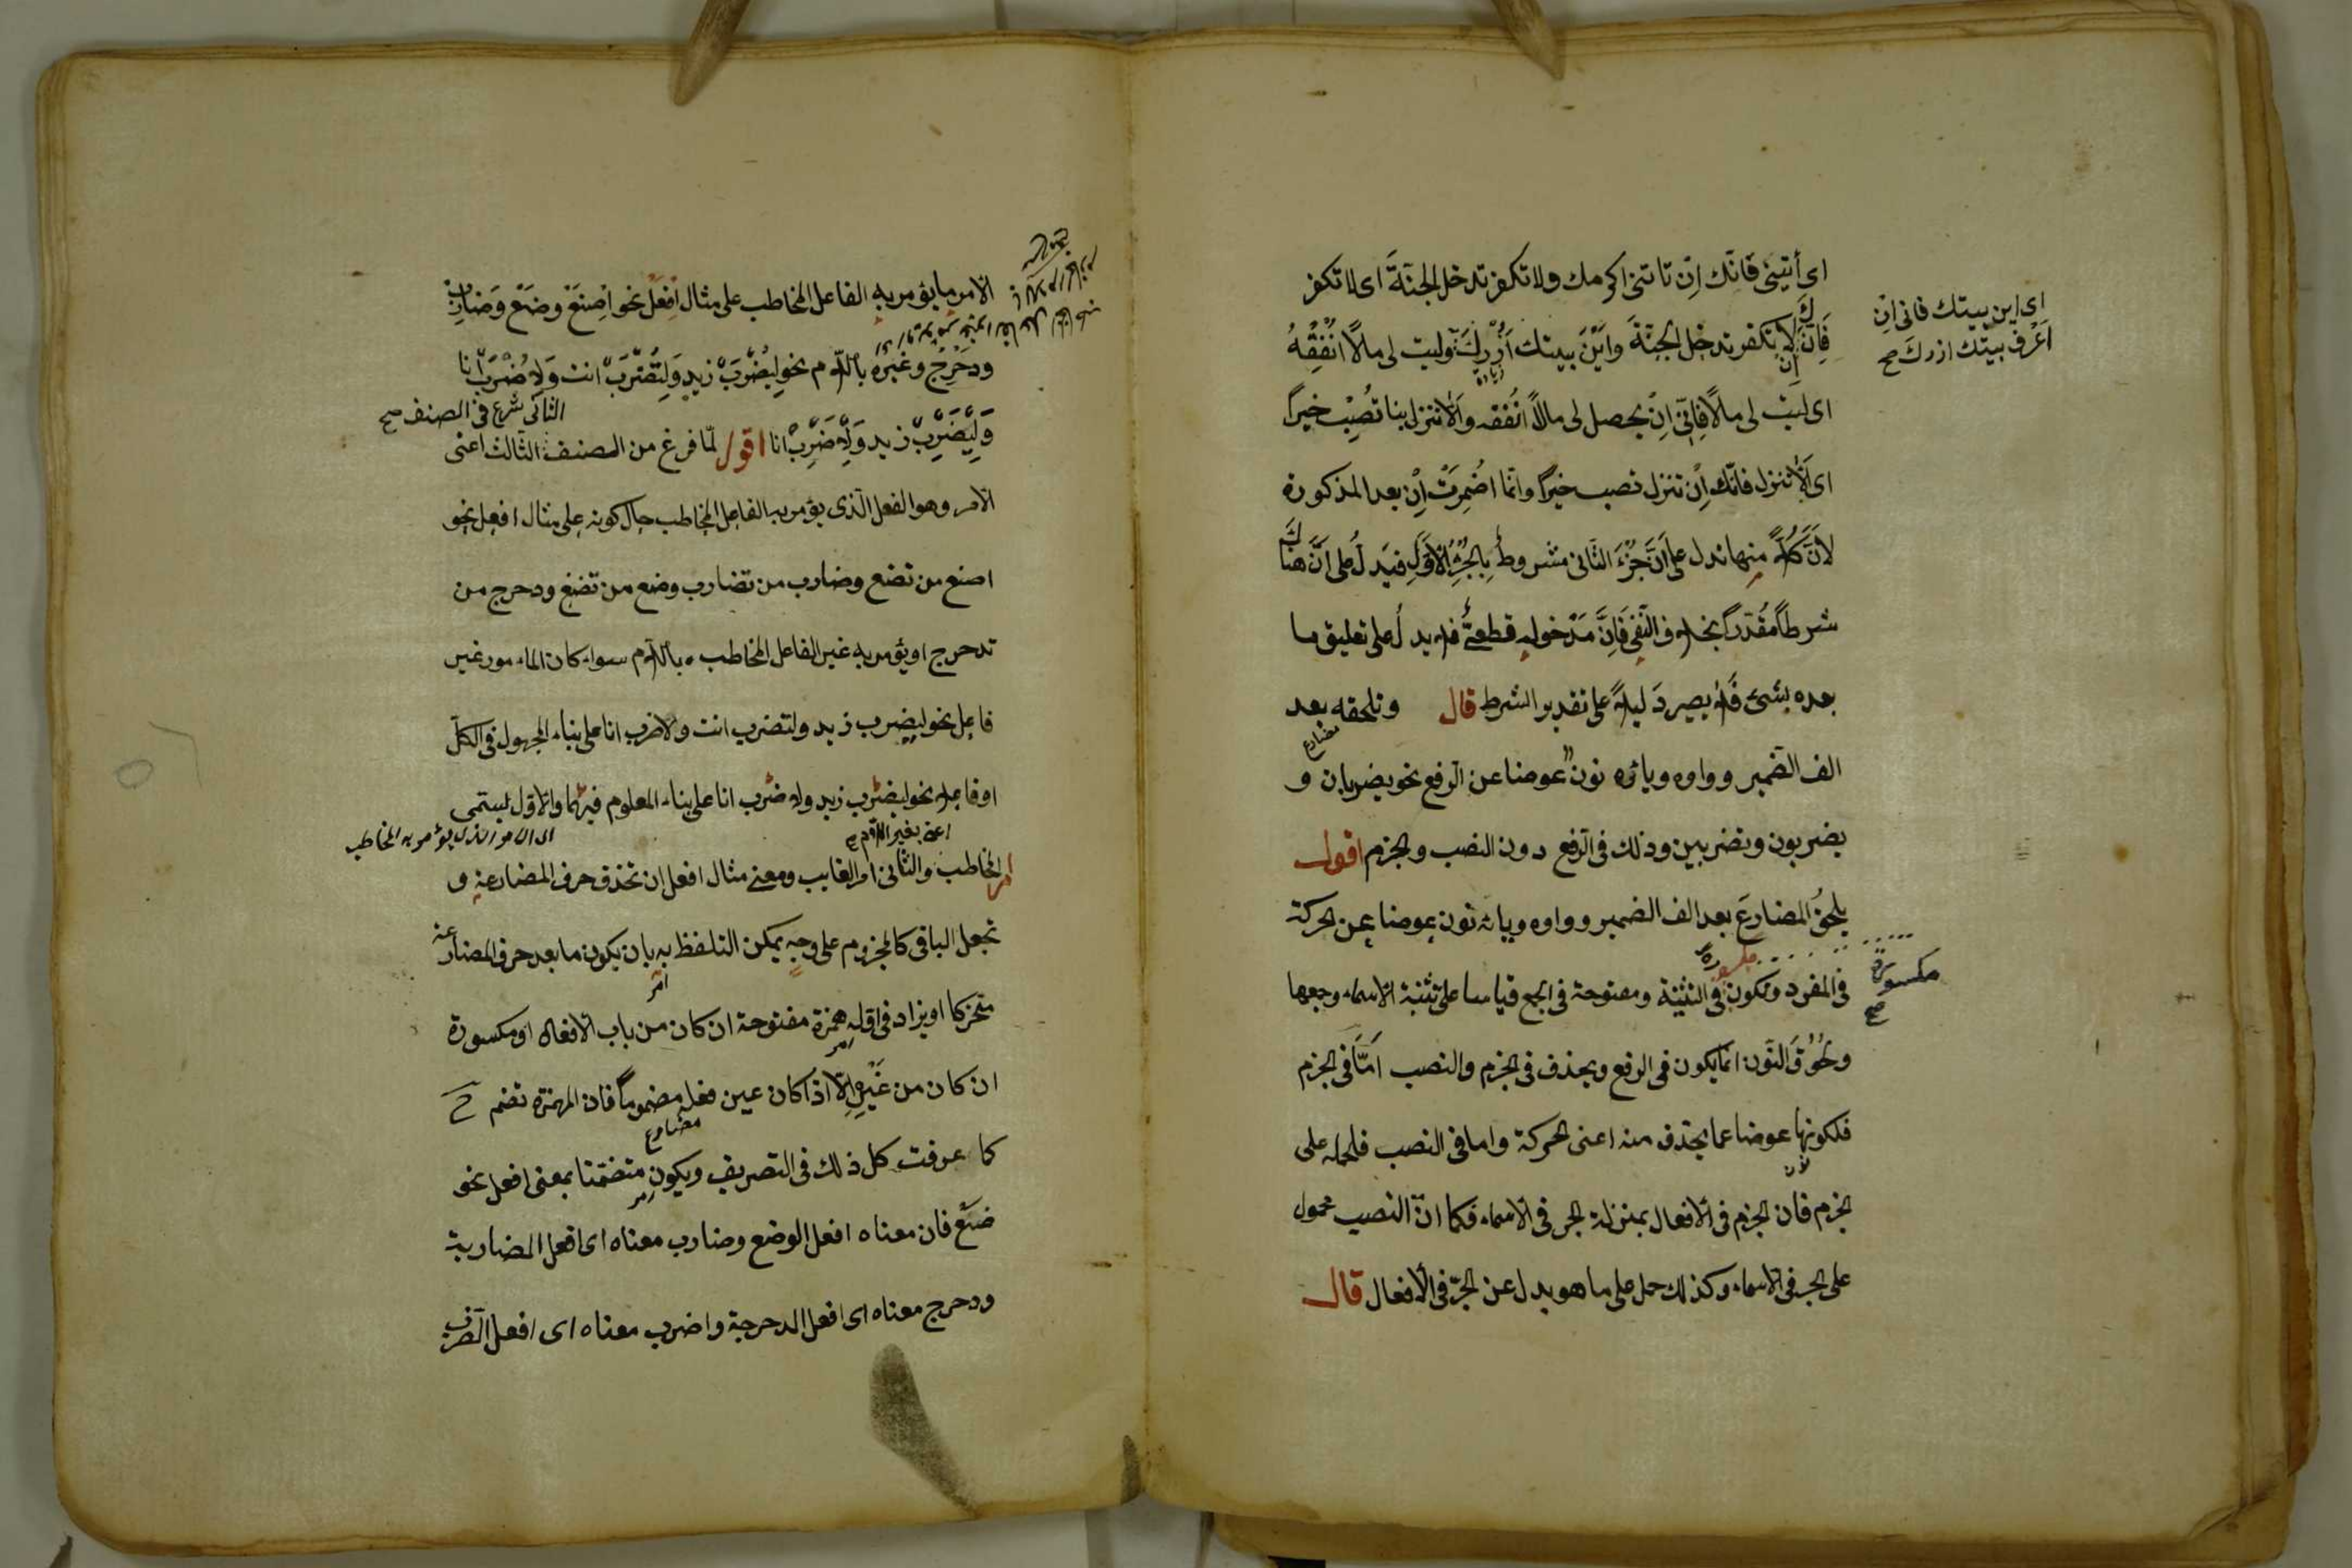 اى أتينى فانّك اِنْ تاتنى اكرمك ولا تكفر تدخل الجنّةَ اى لا تكفر
فَاِنّكَ اِنْ لا تكفر تدخل الجنّةَ واَيْنَ بيتك اَزُرْكَ وليت لى مالًا اُنْفِقْهُ
اى ليت لى مالًا فانّى اِنْ يحصل لى مالًا اُنفقه واَلا تنزل بنا تُصِبْ خيرًا
اى اَلا تنزل فانّك اِنْ تنزل تصب خيرًا وانّما اُضمِرَتْ اِنْ بعد المذكورة
لاَنَّ كُلًّا منها تدل على اَنَّ جُزْءَ الثّانى مشروطٌ بِالجُزْءِ الاَوّلِ فيَدلُ على اَنَّ هناكَ
شرطًا مُقدّرًا بخلاف النّفى فَاِنَّ مَدْخوله قطعىٌّ فلا يدلُ على تعليق ما
بعده بشئ فَلا يصير دَليلًا على تقدير الشرط قال وتلحقه بعد
الف الضّمير وواوه ويائه نون عوضا عن الرّفع نحو يضربان و
مضارع
يضربون وتضربين وذلك فى الرّفع دون النصب والجزم اقول
يلحقُ المضارعَ بعد الف الضمير وواوه ويائه نون عوضا عن الحركة
فى المفرد وتكون فى التثنية ومفتوحة فى الجمع قياسا على تثنية الاسماء وجمعها
مكسورة
ولُحُوقَ النّون انّما يكون فى الرفع ويحذف فى الجزم والنصب اَمّا فى الجزم
فلكونها عوضا عما يحذف منه اعنى الحركة واما فى النصب فلحمله على
الجزم فان الجزم فى الافعال بمنزلة الجر فى الاسماء فكما انّ النصب محمول
على الجر فى الاسماء وكذلك حمل على ما هو بدل عن الجرّ فى الافعال قال
اى اين بيتك فانى اِنْ
اَعْرف بيتك ازرك صح
مكسورة
صح
الامر ما يؤمر به الفاعل المخاطب على مثال اِفْعَلْ نحو اِصْنَعْ وضَعْ وَضارِبْ
ودَحْرِجْ وغيره باللام نحو لِيُضْرَبْ زيد وَلِتُضْرَبْ انت وَلِاُضْرَبْ انا
وَلِيَضْرِبْ زيد وَلِاَضْرِبْ انا اقول لمّا فرغ من الصنف الثالث اعنى
الثانى شرع فى الصنف صح
الامر وهو الفعل الّذى يؤمر به الفاعل المخاطب حال كونه على مثال افعل نحو
اصنع من تصنع وضارب من تضارب وضع من تضع ودحرج من
تدحرج او يؤمر به غير الفاعل المخاطب باللام سواء كان المامور غير
فاعل نحو ليضرب زيد ولتضرب انت ولاضرب انا على بناء المجهول فى الكلّ
او فاعله نحو ليضرب زيد ولاضرب انا على بناء المعلوم فيهما والاوّل يسمّى
اعنى بغير اللام صح
امر المخاطب والثانى امر الغايب ومعنى مثال افعل ان تحذف حرف المضارعة و
تجعل الباقى كالمجزوم على وجه يمكن التلفظ به بان يكون ما بعد حرف المضارعة
متحركا او يزاد فى اوّله همزة مفتوحة ان كان من باب الافعال او مكسورة
ان كان من غَيْرِه اِلّا اذا كان عين فعله مضموما فان الهمزة تضم ح
كما عرفت كل ذلك فى التصريف ويكون متضمّنا بمعنى افعل نحو
مضارع
ضَعْ فان معناه افعل الوضع وضارب معناه اى افعل المضاربة
ودحرج معناه اى افعل الدحرجة واضرب معناه اى افعل الضّرب